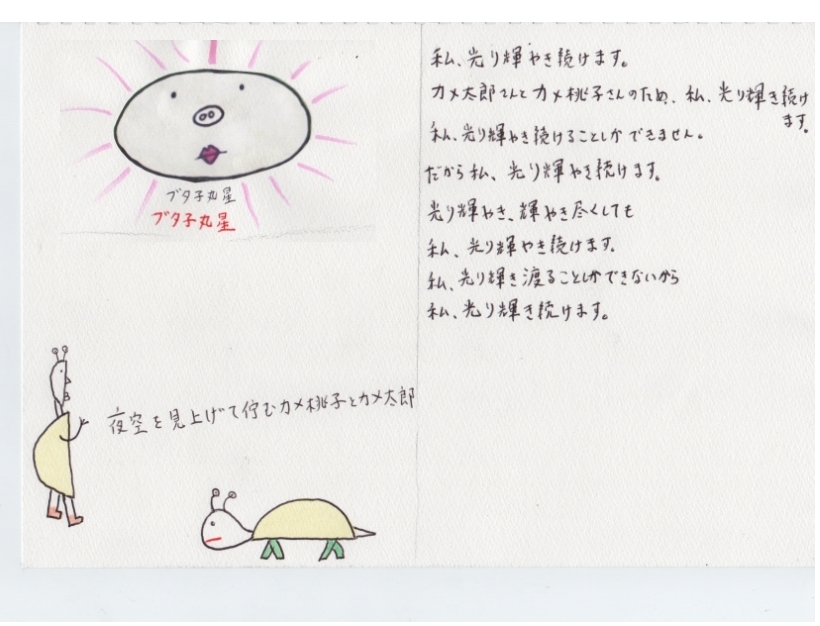 ブタ子丸星
ブタ子丸星
夜空を見上げて佇むカメ桃子とカメ太郎
私、光り輝やき続けます。
カメ太郎さんとカメ桃子さんのため、私、光り輝き続け
ます。
私、光り輝やき続けることしかできません。
だから私、光り輝やき続けます。
光り輝やき、輝やき尽くしても
私、光り輝やき続けます。
私、光り輝き渡ることしかできないから
私、光り輝き続けます。